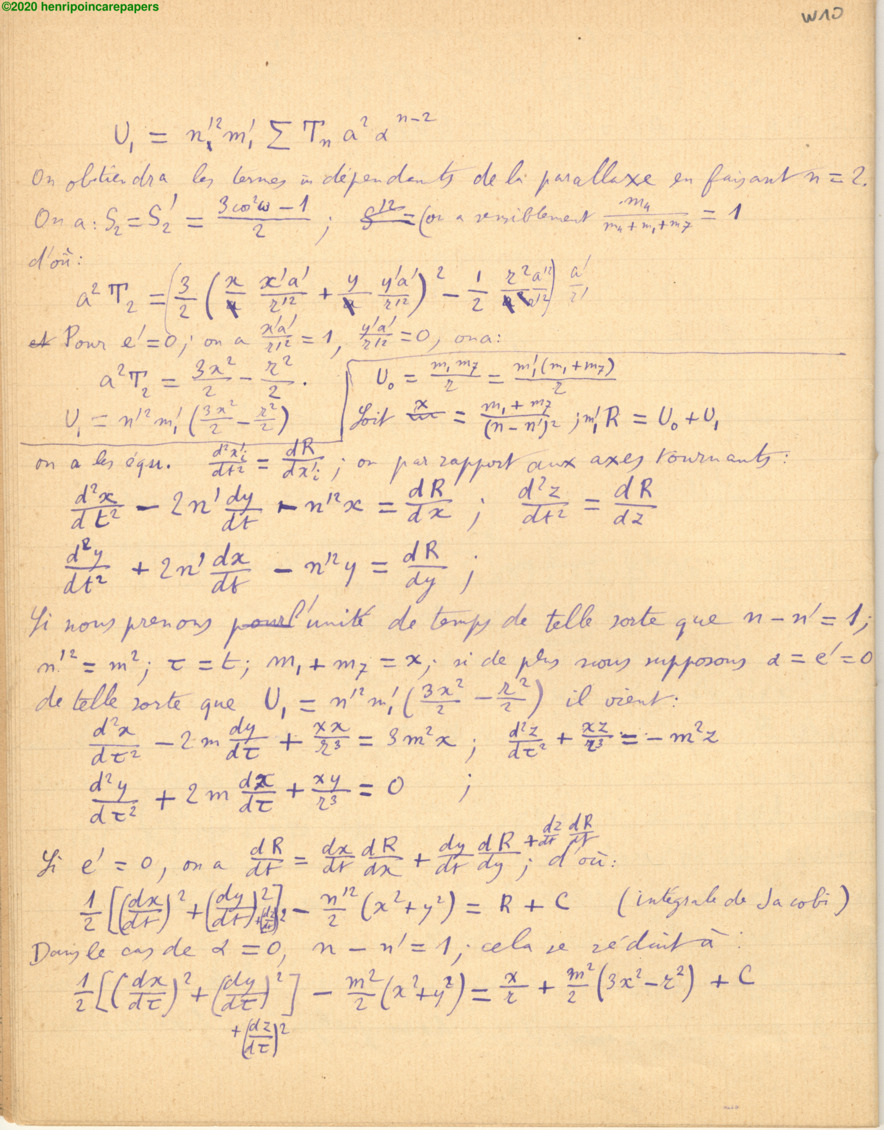 ©2020 henripoincarepapers
W10
U₁ = n'²m'₁ Σ Tₙ a² α^{n-2}
On obtiendra les termes indépendants de la parallaxe en faisant n = 2.
On a : S₂ = S'₂ = (3cos²ω - 1)/2 ; (on a sensiblement m₄/(m₄ + m₁ + m₇) = 1
d'où :
a² T₂ = (3/2 (x x'a'/r'² + y y'a'/r'²)² - 1/2 r²a'²/r'²) a'/r'
Pour e' = 0 ; on a x'a'/r'² = 1, y'a'/r'² = 0, on a :
a²T₂ = 3x²/2 - r²/2 .
U₁ = n'² m'₁ (3x²/2 - r²/2)
U₀ = m₁m₇/r = m'₁(m₁ + m₇)/r
Soit ϰ = (m₁ + m₇)/(n - n')² ; m'₁R = U₀ + U₁
on a les équ. d²x'ᵢ/dt² = dR/dx'ᵢ ; ou par rapport aux axes tournants :
d²x/dt² - 2n' dy/dt - n'²x = dR/dx ; d²z/dt² = dR/dz
d²y/dt² + 2n' dx/dt - n'²y = dR/dy ;
Si nous prenons l'unité de temps de telle sorte que n - n' = 1 ;
n'² = m² ; τ = t ; m₁ + m₇ = ϰ ; si de plus nous supposons α = e' = 0
de telle sorte que U₁ = n'² m'₁ (3x²/2 - r²/2) il vient :
d²x/dτ² - 2m dy/dτ + ϰx/r³ = 3m²x ; d²z/dτ² + ϰz/r³ = -m²z
d²y/dτ² + 2m dx/dτ + ϰy/r³ = 0 ;
Si e' = 0, on a dR/dt = dx/dt dR/dx + dy/dt dR/dy + dz/dt dR/dt ; d'où :
1/2 [(dx/dt)² + (dy/dt)² + (dz/dt)²] - n'²/2 (x² + y²) = R + C (intégrale de Jacobi)
Dans le cas de α = 0, n - n' = 1 ; cela se réduit à :
1/2 [(dx/dτ)² + (dy/dτ)²] - m²/2 (x² + y²) = ϰ/r + m²/2 (3x² - r²) + C
+ (dz/dτ)²